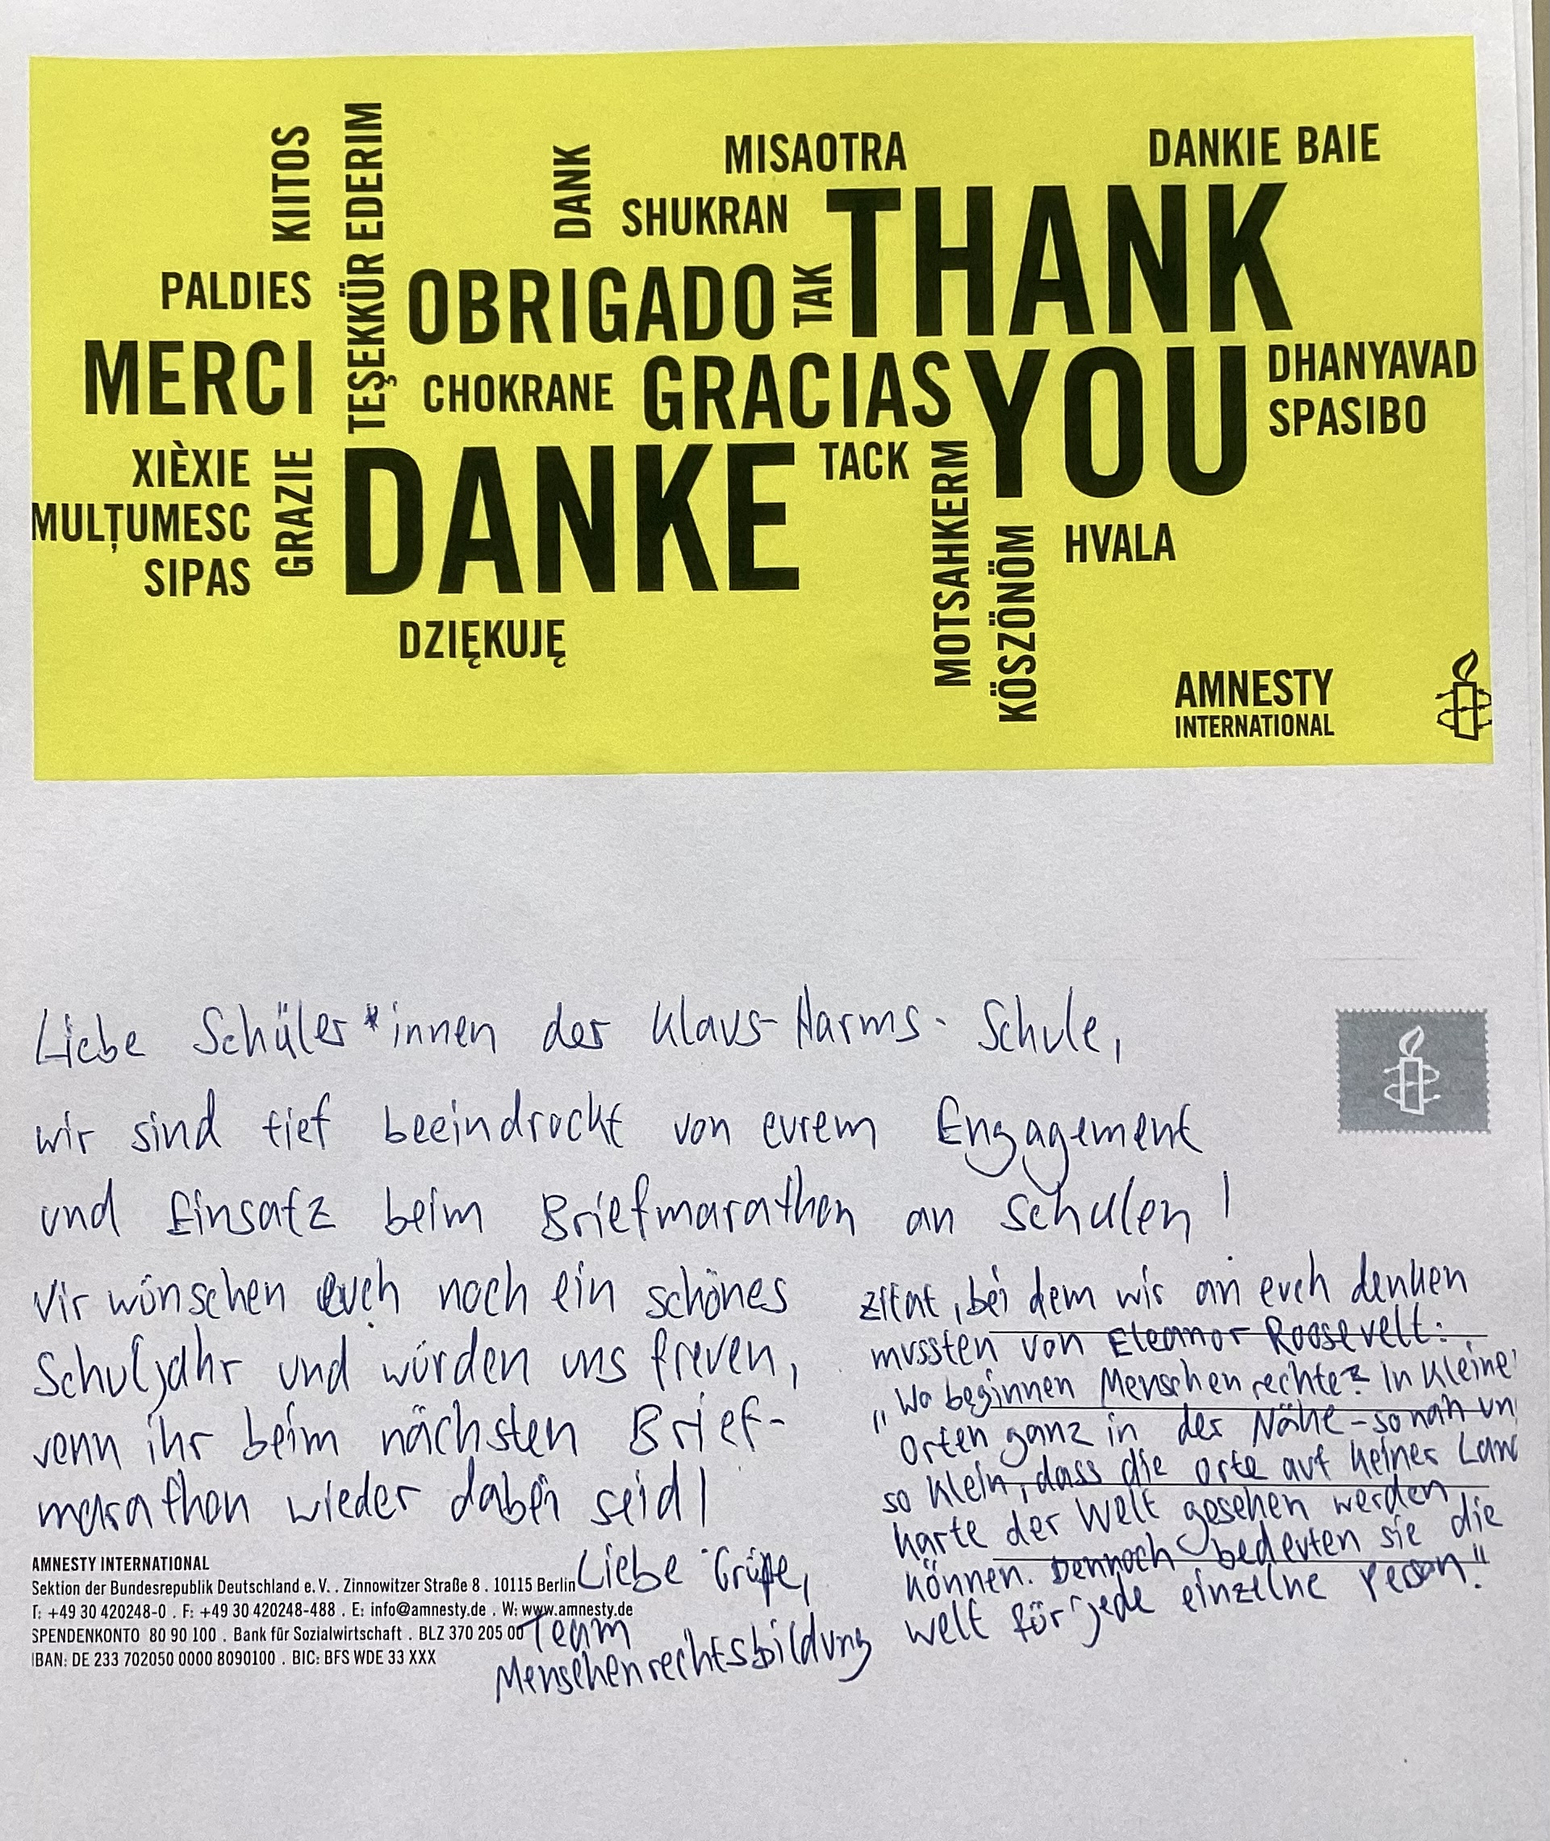 KIITOS
TEŞEKKÜR EDERIM
DANK
MISAOTRA
DANKIE BAIE
SHUKRAN
THANK
PALDIES
OBRIGADO
TAK
MERCI
CHOKRANE
GRACIAS
YOU
DHANYAVAD
SPASIBO
XIÈXIE
GRAZIE
DANKE
TACK
MULŢUMESC
SIPAS
MOTSAHKERM
KÖSZÖNÖM
HVALA
DZIĘKUJĘ
AMNESTY
INTERNATIONAL
Liebe Schüler*innen der Klaus-Harms-Schule,
wir sind tief beeindruckt von eurem Engagement
und Einsatz beim Briefmarathon an Schulen!
Wir wünschen euch noch ein schönes
Schuljahr und würden uns freuen,
wenn ihr beim nächsten Brief-
marathon wieder dabei seid!
Liebe Grüße,
Team
Menschenrechtsbildung
Zitat, bei dem wir an euch denken
mussten von Eleanor Roosevelt:
"Wo beginnen Menschenrechte? In kleinen
Orten ganz in der Nähe - so nah un
so klein, dass die Orte auf keiner Land
karte der Welt gesehen werden
können. Dennoch bedeuten sie die
Welt für jede einzelne Person."
AMNESTY INTERNATIONAL
Sektion der Bundesrepublik Deutschland e. V. . Zinnowitzer Straße 8 . 10115 Berlin
T: +49 30 420248-0 . F: +49 30 420248-488 . E: info@amnesty.de . W: www.amnesty.de
SPENDENKONTO 80 90 100 . Bank für Sozialwirtschaft . BLZ 370 205 00
IBAN: DE 233 702050 0000 8090100 . BIC: BFS WDE 33 XXX